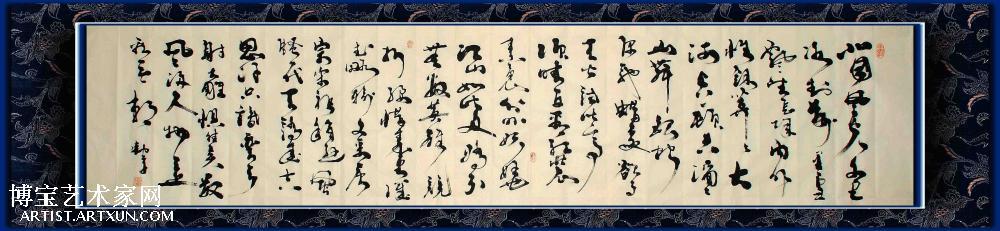 北国风光千里
冰封万里雪
飘望长城内外
惟余莽莽大
河上下顿失滔滔
山舞银蛇
原驰蜡象欲与
天公试比高
须晴日看红装
素裹分外妖娆
江山如此多娇引
无数英雄竞
折腰惜秦皇汉
武略输文采唐
宗宋祖稍逊风
骚一代天骄成吉
思汗只识弯弓
射雕俱往矣数
风流人物还
看今朝
博宝艺术家网
ARTIST.ARTXUN.COM